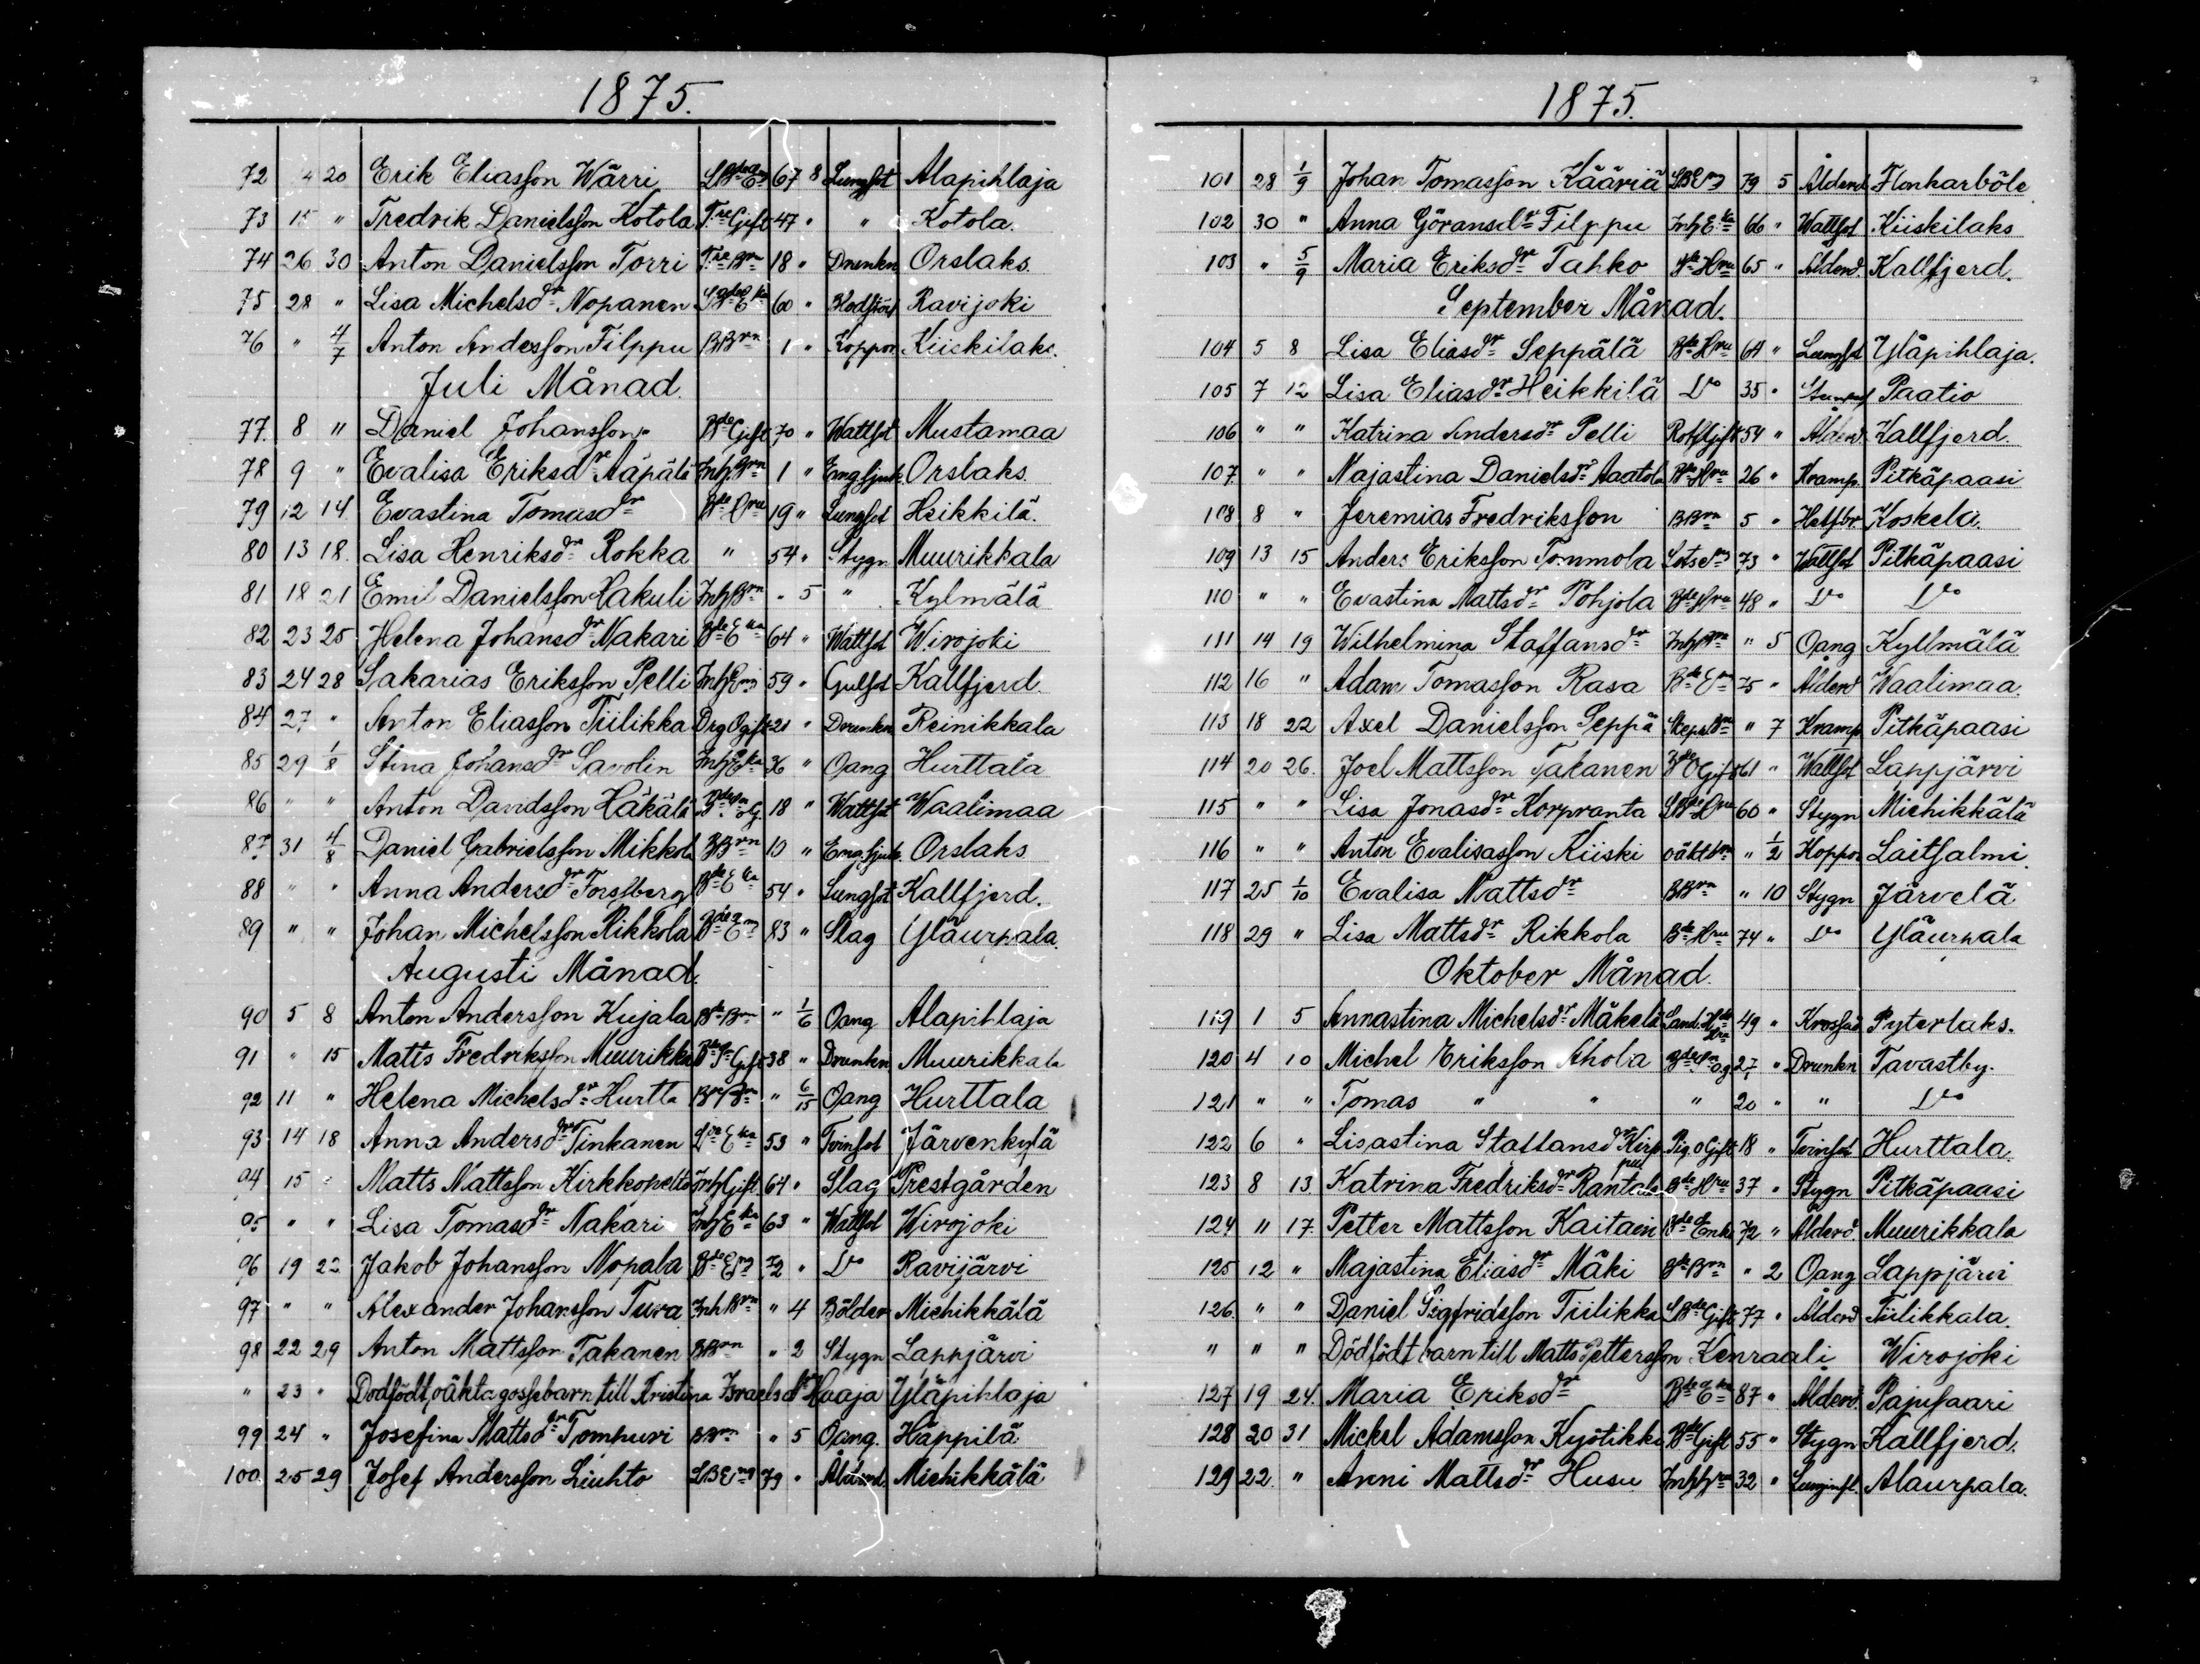 1875.
72 4 20 Erik Eliasson Wärri 67 8 Lungsot Alapihlaja
73 15 " Fredrik Danielsson Kotola Gift 47 " " Kotola.
74 26 30 Anton Danielsson Torri 18 " Drunkn Orslaks.
75 28 " Lisa Michelsdr Nopanen 60 " Ravijoki
76 " 4/7 Anton Andersson Filppu BBrn 1 " Koppor Kiiskilaks.
Juli Månad.
77. 8 " Daniel Johansson Bde Gift 70 " Wattsot Mustamaa
78 9 " Evalisa Eriksdr Aäpälä Inh Brn 1 " Orslaks.
79 12 14 Evastina Tomasdr Bde Hru 19 " Lungsot Heikkilä.
80 13 18. Lisa Henriksdr Rokka " 54 " Stygn Muurikkala
81 18 21 Emil Danielsson Hakuli Inh Brn " 5 " Kylmälä
82 23 25 Helena Johansdr Nakari Bde Eka 64 " Wattsot Wirojoki
83 24 28 Sakarias Eriksson Pelli Inh Em 59 " Gulsot Kallfjerd.
84 27 " Anton Eliasson Tiilikka Drg Ogift 21 " Drunkn Reinikkala
85 29 1/8 Stina Johansdr Savolin Inh Eka 36 " Oang Hurttala
86 " " Anton Davidsson Häkälä 18 " Wattsot Waalimaa
87 31 4/8 Daniel Gabrielsson Mikkola BBrn 10 " Orslaks
88 " " Anna Andersdr Forssberg Bde Eka 54 " Lungsot Kallfjerd.
89 " " Johan Michelsson Rikkola Bde Em 83 " Slag Yläurpala.
Augusti Månad.
90 5 8 Anton Andersson Kujala Bde Brn " 1/6 Oang Alapihlaja
91 " 15 Matts Fredriksson Muurikka Gift 38 " Drunkn Muurikkala
92 11 " Helena Michelsdr Hurtta " 6/15 Oang Hurttala
93 14 18 Anna Andersdr Tinkanen Eka 53 " Tvinsot Järvenkylä
94 15 " Matts Mattsson Kirkkopelto Inh Gift 64 " Slag Prestgården
95 " " Lisa Tomasdr Nakari Inh Eka 63 " Wattsot Wirojoki
96 19 22 Jakob Johansson Nopala Bde Em 72 " Do Ravijärvi
97 " " Alexander Johansson Tuva Inh Brn " 4 Bölder Miehikkälä
98 22 29 Anton Mattsson Takanen BBrn " 2 Stygn Lappjärvi
" 23 " Dödfödt oäkta gossebarn till Kristina Israelsdr Haaja Yläpihlaja
99 24 " Josefina Mattsdr Tompuri BBrn " 5 Oang. Häppilä
100 25 29 Josef Andersson Liuhto 79 " Ålderd. Miehikkälä
1875.
101 28 1/9 Johan Tomasson Kääriä 79 5 Ålderd Flonkarböle
102 30 " Anna Göransdr Filppu Inh Eka 66 " Wattsot Kiiskilaks
103 " 5/9 Maria Eriksdr Tahko Bde Hru 65 " Ålderd. Kallfjerd.
September Månad.
104 5 8 Lisa Eliasdr Seppälä Bde Hru 64 " Lungsot Yläpihlaja.
105 7 12 Lisa Eliasdr Heikkilä Do 35 " Paatio
106 " " Katrina Andersdr Pelli Gift 54 " Ålderd. Kallfjerd.
107. " " Majastina Danielsdr Aaatola Bde Hru 26 " Kramp. Pitkäpaasi
108 8 " Jeremias Fredriksson BBrn 5 " Koskela.
109 13 15 Anders Eriksson Tommola 73 " Wattsot Pitkäpaasi
110 " " Evastina Mattsdr Pohjola Bde Hru 48 " Do Do
111 14 19 Wilhelmina Staffansdr Inh Brn " 5 Oang Kyllmälä
112 16 " Adam Tomasson Rasa Bde Em 75 " Ålderd Waalimaa.
113 18 22 Axel Danielsson Seppä " 7 Kramp Pitkäpaasi
114 20 26. Joel Mattsson Takanen Gift 61 " Wattsot Lappjärvi
115 " " Lisa Jonasdr Korpranta 60 " Stygn Miehikkälä
116 " " Anton Evalisasson Kiiski oäkt brn " 1/2 Koppor Laitsalmi.
117 25 1/10 Evalisa Mattsdr BBrn " 10 Stygn Järvelä
118 29 " Lisa Mattsdr Rikkola Bde Hru 74 " Do Yläurpala
Oktober Månad.
119 1 5 Annastina Michelsdr Mäkelä 49 " Pyterlaks.
120 4 10 Michel Eriksson Ahola 27 " Drunkn Tavastby.
121 " " Tomas " " " 20 " " Do
122 6 " Lisastina Staffansdr Kirppu Pig. oGift 18 " Tvinsot Hurttala.
123 8 13 Katrina Fredriksdr Rantala Bde Hru 37 " Stygn Pitkäpaasi
124 " 17. Petter Mattsson Kaitain Bde Enkl 72 " Ålderd. Muurikkala
125 12 " Majastina Eliasdr Mäki Bde Brn " 2 Oang Lappjärvi
126. " " Daniel Sigfridsson Tiilikka Gift 77 " Ålderd Tiilikkala.
" " " Dödfödt barn till Matts Pettersson Kenraali Wirojoki
127 19 24. Maria Eriksdr Bde Eka 87 " Ålderd. Pajusaari
128 20 31 Mickel Adamsson Kyötikki Bde Gift 55 " Stygn Kallfjerd.
129 22 " Anni Mattsdr Husu 32 " Alaurpala.